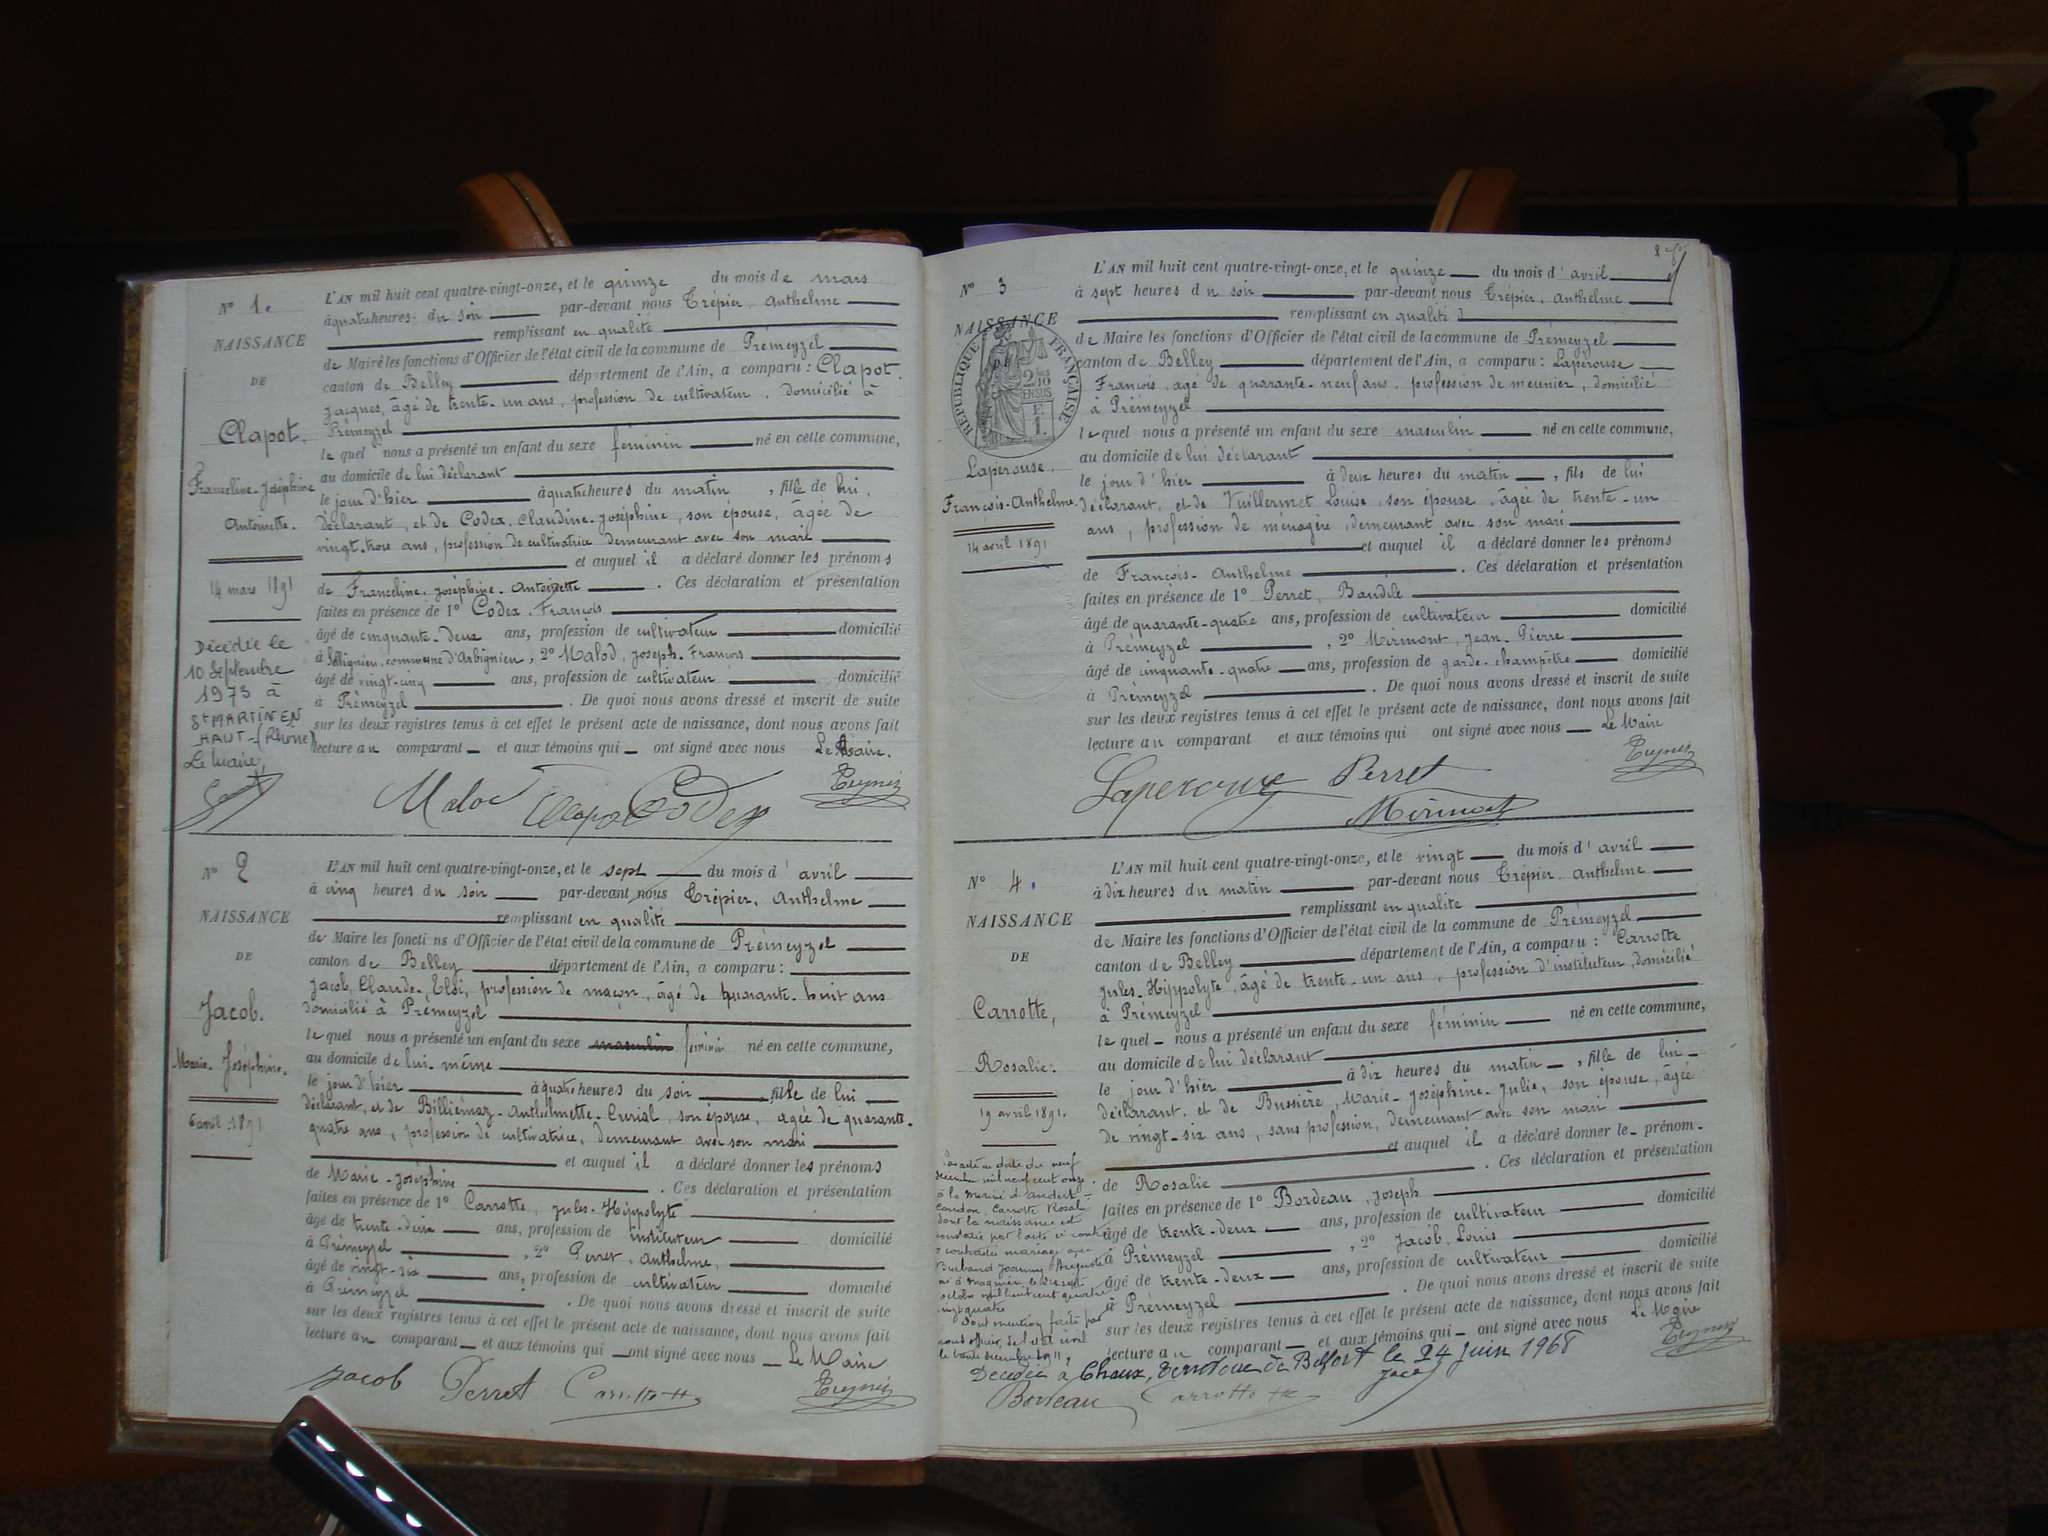 N° 1.
NAISSANCE
DE
Clapot.
Franceline-Joséphine
Antoinette.
14 mars 1891
Décédée le
10 Septembre
1973 à
St MARTIN EN
HAUT-(Rhône)
Le Maire,
L'AN mil huit cent quatre-vingt-onze, et le quinze du mois de mars
à quatre heures du soir par-devant nous Trépier, Anthelme
remplissant en qualité
de Maire les fonctions d'Officier de l'état civil de la commune de Prémeyzel
canton de Belley département de l'Ain, a comparu : Clapot.
Jacques, âgé de trente-un ans, profession de cultivateur, domicilié à
Prémeyzel
le quel nous a présenté un enfant du sexe féminin né en cette commune,
au domicile de lui déclarant
le jour d'hier à quatre heures du matin, fille de lui,
déclarant, et de Codex, Claudine-Joséphine, son épouse, âgée de
vingt-trois ans, profession de cultivatrice demeurant avec son mari
et auquel il a déclaré donner les prénoms
de Franceline-Joséphine-Antoinette. Ces déclaration et présentation
faites en présence de 1° Codex, François
âgé de cinquante-deux ans, profession de cultivateur domicilié
à commune d'Arbignieu, 2° Malod, Joseph-François
âgé de vingt-cinq ans, profession de cultivateur domicilié
à Prémeyzel. De quoi nous avons dressé et inscrit de suite
sur les deux registres tenus à cet effet le présent acte de naissance, dont nous avons fait
lecture au comparant et aux témoins qui ont signé avec nous Le Maire.
Malod Clapot Codex
N° 2
NAISSANCE
DE
Jacob.
Marie-Joséphine.
6 avril 1891
L'AN mil huit cent quatre-vingt-onze, et le sept du mois d'avril
à cinq heures du soir par-devant nous Trépier, Anthelme
remplissant en qualité
de Maire les fonctions d'Officier de l'état civil de la commune de Prémeyzel
canton de Belley département de l'Ain, a comparu :
Jacob, Claude-Eloi, profession de maçon, âgé de quarante-huit ans
domicilié à Prémeyzel
le quel nous a présenté un enfant du sexe masculin féminin né en cette commune,
au domicile de lui-même
le jour d'hier à quatre heures du soir, fille de lui
déclarant, et de Billiémaz-Anthelmette-Curial, son épouse, agée de quarante-
quatre ans, profession de cultivatrice, demeurant avec son mari
et auquel il a déclaré donner les prénoms
de Marie-Joséphine. Ces déclaration et présentation
faites en présence de 1° Carrotte, Jules-Hippolyte
âgé de trente-deux ans, profession de instituteur domicilié
à Prémeyzel, 2° Perret, Anthelme,
âgé de vingt-six ans, profession de cultivateur domicilié
à Prémeyzel. De quoi nous avons dressé et inscrit de suite
sur les deux registres tenus à cet effet le présent acte de naissance, dont nous avons fait
lecture au comparant et aux témoins qui ont signé avec nous Le Maire
Jacob Perret Carrotte
N° 3
NAISSANCE
DE
RÉPUBLIQUE FRANÇAISE
2/10
EN SUS
Laperouse,
François-Anthelme.
14 avril 1891
L'AN mil huit cent quatre-vingt-onze, et le quinze du mois d'avril
à sept heures du soir par-devant nous Trépier, Anthelme
remplissant en qualité
de Maire les fonctions d'Officier de l'état civil de la commune de Prémeyzel
canton de Belley département de l'Ain, a comparu : Laperouse
François, agé de quarante-neuf ans, profession de meunier, domicilié
à Prémeyzel
le quel nous a présenté un enfant du sexe masculin né en cette commune,
au domicile de lui déclarant
le jour d'hier à deux heures du matin, fils de lui
déclarant, et de Vuillermet Louise, son épouse, âgée de trente-un
ans, profession de ménagère, demeurant avec son mari
et auquel il a déclaré donner les prénoms
de François-Anthelme. Ces déclaration et présentation
faites en présence de 1° Perret, Baudile
âgé de quarante-quatre ans, profession de cultivateur domicilié
à Prémeyzel, 2° Mirmont, Jean-Pierre
âgé de cinquante-quatre ans, profession de garde-champêtre domicilié
à Prémeyzel. De quoi nous avons dressé et inscrit de suite
sur les deux registres tenus à cet effet le présent acte de naissance, dont nous avons fait
lecture au comparant et aux témoins qui ont signé avec nous Le Maire
Laperouse Perret
Mirmont
N° 4.
NAISSANCE
DE
Carrotte,
Rosalie.
19 avril 1891.
Par acte en date du neuf
décembre mil neuf cent onze
à la mairie d'Andert-
Condon, Carrotte Rosalie
dont la naissance est
constatée par l'acte ci contre
a contracté mariage avec
Joanny Auguste
né à le
octobre mil huit cent quatre
vingt quatre
Dont mention faite par
nous officier de l'état civil
le décembre 1911,
L'AN mil huit cent quatre-vingt-onze, et le vingt du mois d'avril
à dix heures du matin par-devant nous Trépier, Anthelme
remplissant en qualité
de Maire les fonctions d'Officier de l'état civil de la commune de Prémeyzel
canton de Belley département de l'Ain, a comparu : Carrotte
Jules-Hippolyte, âgé de trente-un ans, profession d'instituteur, domicilié
à Prémeyzel
le quel nous a présenté un enfant du sexe féminin né en cette commune,
au domicile de lui déclarant
le jour d'hier à dix heures du matin, fille de lui
déclarant, et de Bussière, Marie-Joséphine-Julie, son épouse, âgée
de vingt-six ans, sans profession, demeurant avec son mari
et auquel il a déclaré donner le prénom
de Rosalie. Ces déclaration et présentation
faites en présence de 1° Bordeau, Joseph
âgé de trente-deux ans, profession de cultivateur domicilié
à Prémeyzel, 2° Jacob, Louis
âgé de trente-deux ans, profession de cultivateur domicilié
à Prémeyzel. De quoi nous avons dressé et inscrit de suite
sur les deux registres tenus à cet effet le présent acte de naissance, dont nous avons fait
lecture au comparant et aux témoins qui ont signé avec nous Le Maire
Décédée à Chaux, Territoire de Belfort le 24 Juin 1968
Bordeau Carrotte Jacob